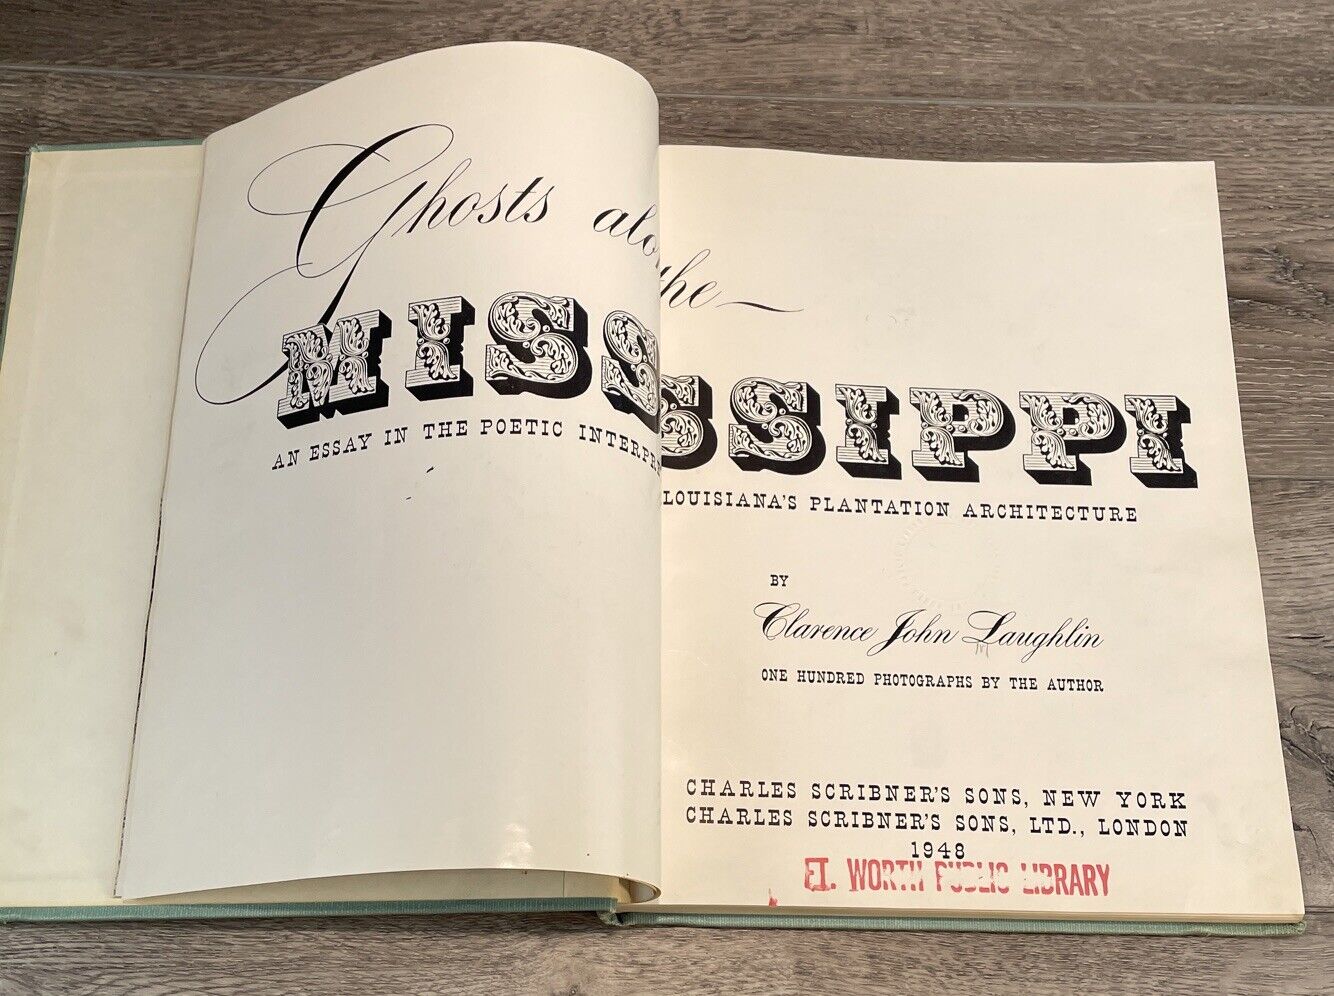 Ghosts alo the
MISSISSIPPI
AN ESSAY IN THE POETIC INTERPR LOUISIANA'S PLANTATION ARCHITECTURE
BY
Clarence John Laughlin
ONE HUNDRED PHOTOGRAPHS BY THE AUTHOR
CHARLES SCRIBNER'S SONS, NEW YORK
CHARLES SCRIBNER'S SONS, LTD., LONDON
1948
FT. WORTH PUBLIC LIBRARY